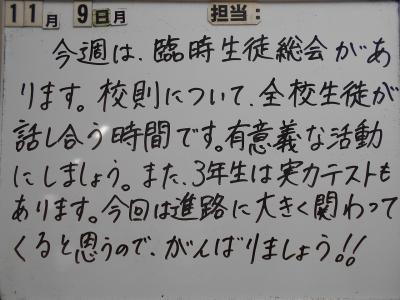 11月 9日月 担当:
今週は、臨時生徒総会があ
ります。校則について、全校生徒が
話し合う時間です。有意義な活動
にしましょう。また、3年生は実力テストも
あります。今回は進路に大きく関わって
くると思うので、がんばりましょう!!